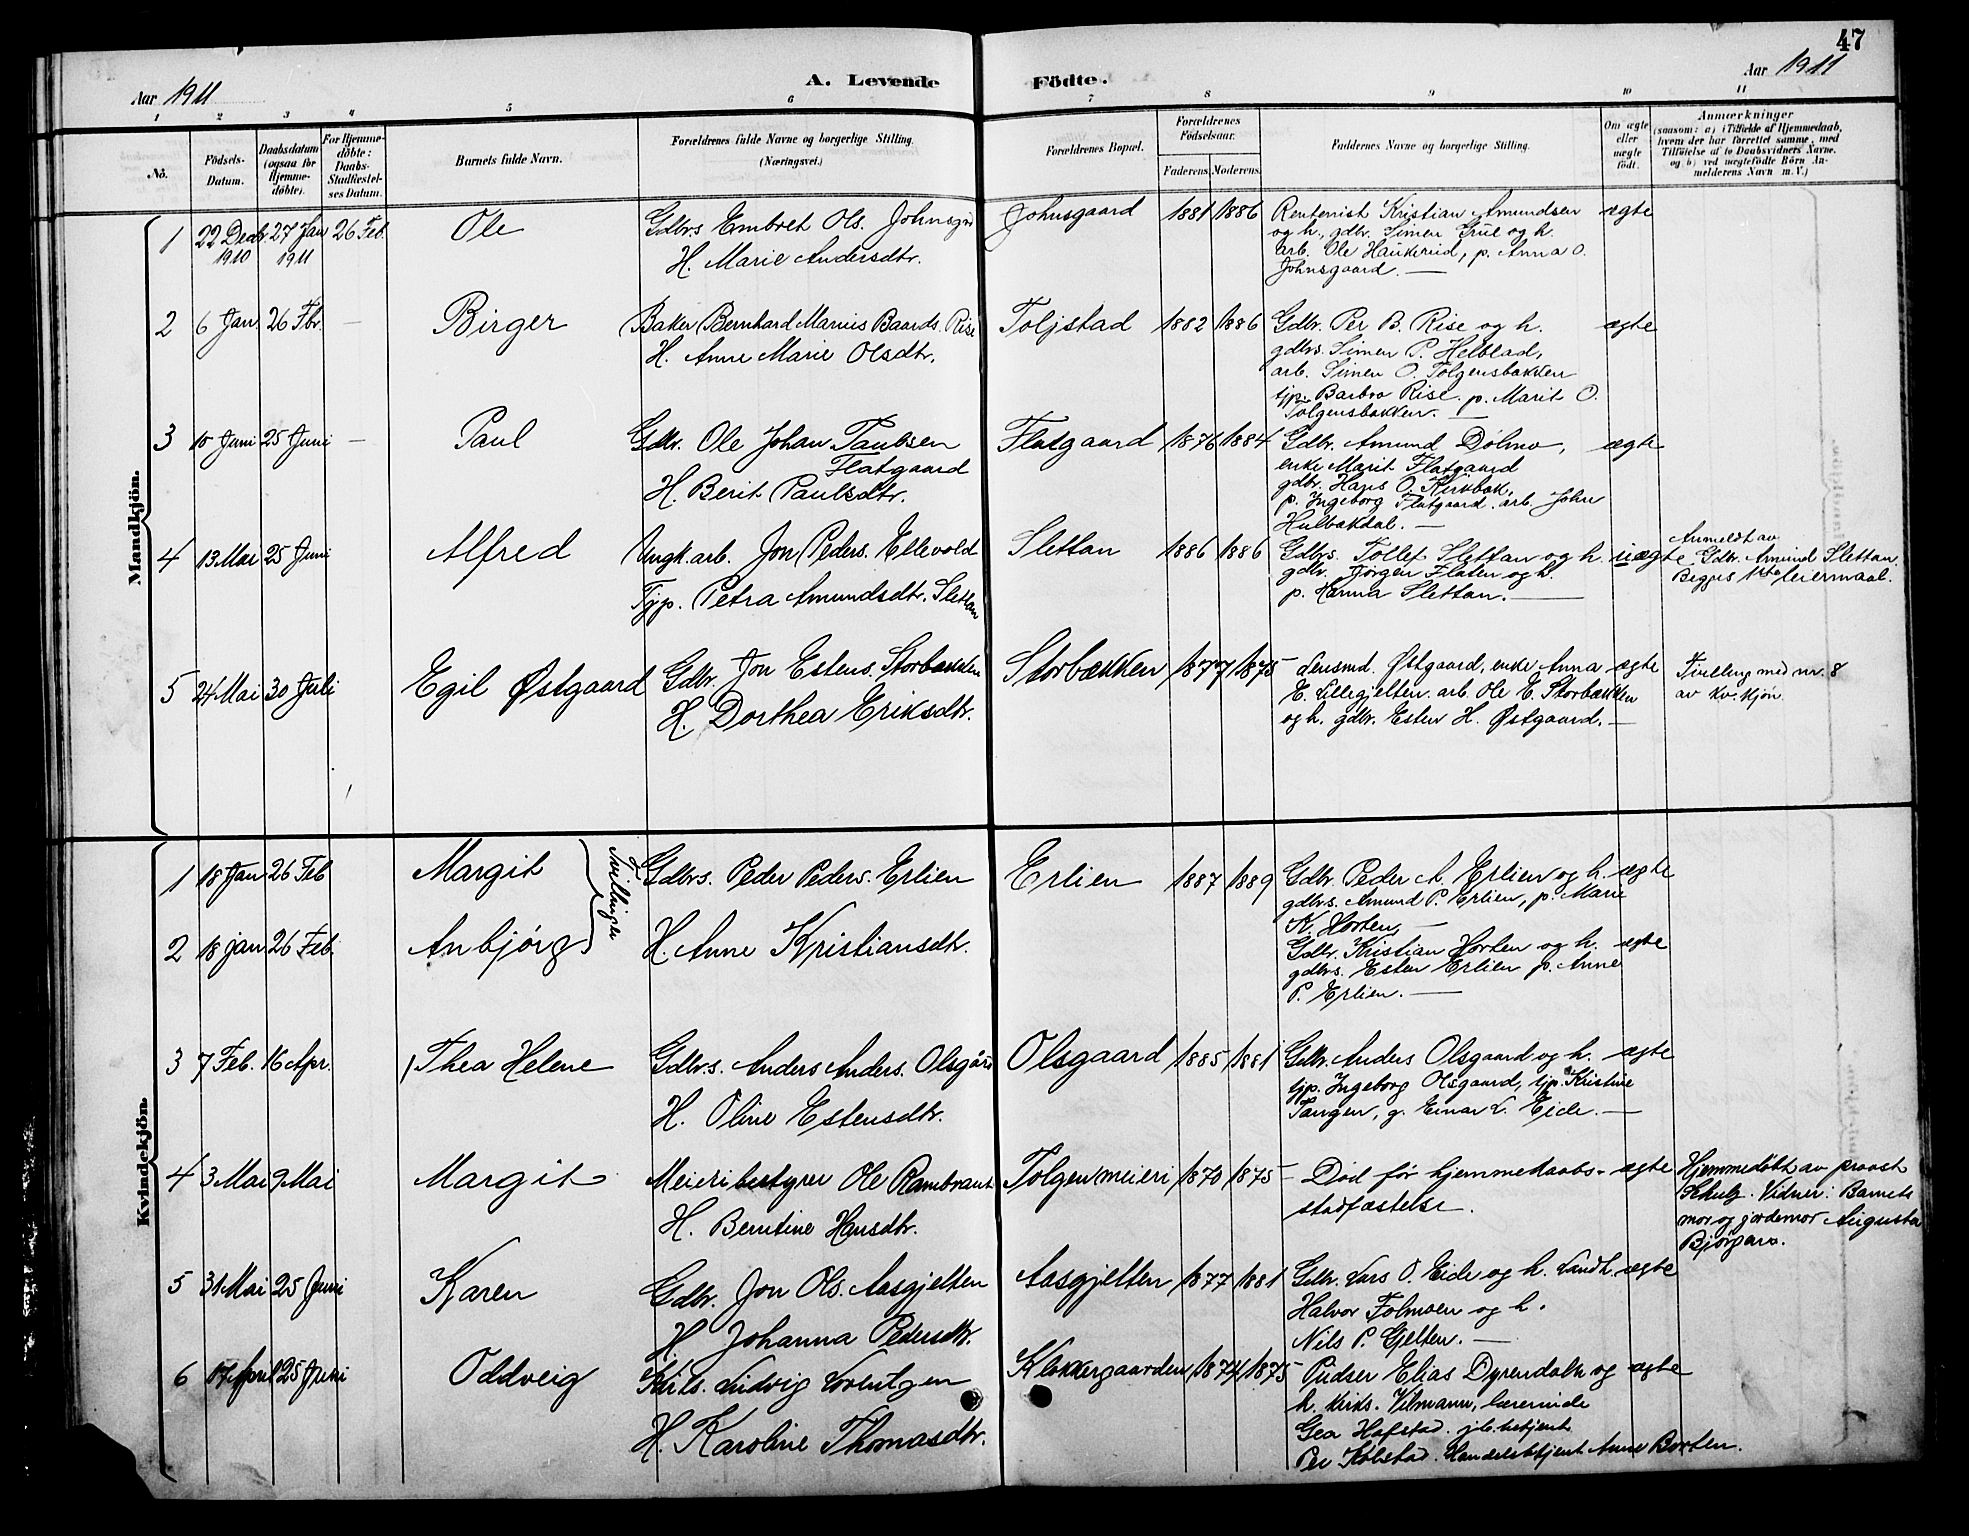 47
Aar 1911
A. Levende Födte.
Aar 1911
1 2 3 4 5 6 7 8 9 10 11
No.
Födsels-Datum.
Daabsdatum (ogsaa for Hjemmedöbte).
For Hjemmedöbte: Daabs-Stadfæstelses Datum.
Barnets fulde Navn.
Forældrenes fulde Navne og borgerlige Stilling. (Næringsvei.)
Forældrenes Bopæl.
Forældrenes Födselsaar.
Faderens. Moderens.
Faddernes Navne og borgerlige Stilling.
Om ægte eller uægte födt.
Anmærkninger
(saasom: a) i Tilfælde af Hjemmedaab, hvem der har forrettet samme, med Tilföielse af to Daabsvidners Navne. og b) ved uægtefödte Börn Anmelderens Navn m. V.)
Mandkjön.
1 22 Decbr. 1910 27 Jan 1911 26 Feb. Ole
Gdbrs Embret Ols. Johnsgrd
H. Marie Andersdtr.
Johnsgaard 1881 1886
Rentenist Kristian Amundsen
og h., gdbr. Simen Grue og h.
arb. Ole Haukerud, p. Anna O.
Johnsgaard. —
ægte
2 6 Jan. 26 Fbr. — Birger
Baker Bernhard Marius Baards. Rise
H. Anne Marie Olsdtr.
Toljstad 1882 1886
Gdbr. Per B. Rise og h.
gdbrs. Simen P. Helblad,
arb. Simen O. Tolgensbakken
tjp. Barbro Rise. p. Marit O.
Tolgensbakken. —
ægte
3 10 Juni 25 Juni — Paul
Gdbr. Ole Johan Paulsen
Flatgaard
H. Berit Paulsdtr.
Flatgaard 1876 1884
Gdbr. Amund Dølmo,
enke Marit Flatgaard
gdbr. Hans O. Kirkbak.
p. Ingeborg Flatgaard. arb. John
Hulbakdal. —
ægte
4 13 Mai 25 Juni Alfred
Ungk. arb. Jon Peders. Ellevold
Tjp. Petra Amundsdtr. Slettan
Slettan 1886 1886
Gdbrs. Tollef Slettan og h.
gdbr. Jørgen Flaten og h.
p. Hanna Slettan. —
uægte
Anmeldt av
Gdbr. Amund Slettan
Begges 1ste leiermaal.
5 24 Mai 30 Juli Egil Østgaard
Gdbr. Jon Estens. Storbækken
H. Dorthea Eriksdtr.
Storbækken 1877 1875
Lensmd. Østgaard, enke Anna
E. Lillegjelten. arb. Ole E. Storbækken
og h. gdbr. Esten H. Østgaard. —
ægte
Tvilling med nr. 8
av kv. kjøn
Kvindekjön.
1 18 Jan 26 Feb Margit
Tvillinger
Gdbrs. Peder Peders. Erlien
Erlien 1887 1889
Gdbr. Peder A. Erlien og h.
gdbrs. Amund P. Erlien, p. Marie
K. Horten, —
ægte
2 18 jan 26 Feb. Anbjørg
H. Anne Kristiansdtr.
Gdbr. Kristian Horten og h.
gdbrs. Esten Erlien p. Anne
P. Erlien. —
ægte
3 7 Feb. 16 Apr. Thea Helene
Gdbr.s. Anders Anders. Olsgård
H. Oline Estensdtr.
Olsgaard 1885 1881
Gdbr. Anders Olsgaard og h.
tjp. Ingeborg Olsgaard, tjp. Kristine
Tangen, g. Einar L. Eide. —
ægte
4 3 Mai 9 Mai Margit
Meieribestyrer Ole Rambraut
H. Berntine Hansdtr.
Tolgen meieri 1870 1875
Død før hjemmedaabs-
stadfæstelse.
ægte
Hjemmedøbt av provst
Schulz. Vidner: Barnets
mor og jordemor Augusta
5 31 Mai 25 Juni Karen
Gdbr. Jon Ols. Aasgjelten
H. Johanna Pedersdtr.
Aasgjelten 1877 1881
Gdbr. Lars O. Eide og h. Landh.
Halvor Tolmoen og h.
Nils P. Gjelten. —
ægte
6 17 April 25 Juni Oddveig
Kirks. Ludvig Lorentzen
H. Karoline Thomasdtr.
Klokkergaarden 1874 1875
Pudser Elias Dyrendahl og
h. kirks. Vilmann, lærerinde
Gea Hafstad. jb. betjent
Per Kolstad. Handelsbetjent Anne Borten.
ægte